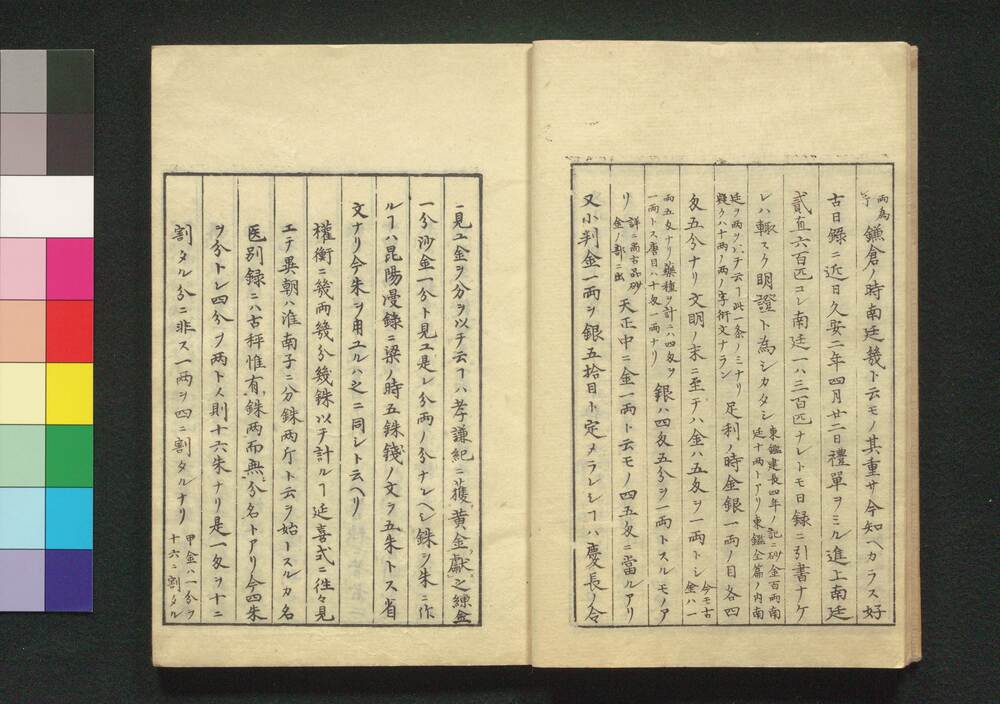 両為
等 鎌倉ノ時南廷幾ト云モノ其重サ今知ヘカラス好
古日録ニ近日久安二年四月廿二日禮單ヲミル進上南廷
貳直六百匹コレ南廷一ハ三百匹ナレトモ日録ニ引書ナケ
レハ輙スク明證ト為シカタシ 東鑑建長四年ノ記ニ砂金百両南
廷十両トアリ東鑑全篇ノ内南
廷ヲ両ヲ以テ云フ此一条ノミナリ
疑クハ十両ノ両ノ字衍文ナラン 足利ノ時金銀一両ノ目各四
匁五分ナリ文明ノ末ニ至テハ金ハ五匁ヲ一両トシ 今モ古
金ハ一
両五匁ナリ藥種ヲ計ニハ四匁ヲ
一両トス唐目ハ十匁一両ナリ 銀ハ四匁五分ヲ一両トスルモノア
リ 詳ニ尚古品砂
金ノ部ニ出 天正中ニ金一両ト云モノ四五匁ニ當ルアリ
又小判金一両ヲ銀五拾目ト定メラレシヿハ慶長ノ令
ニ見ユ金ヲ分ヲ以テ云ヿハ孝謙紀ニ獲黄金獻之練金
一分沙金一分ト見ユ是レ分両ノ分ナレヘシ銖ヲ朱ニ作
ルヿハ昆陽漫錄ニ梁ノ時五銖錢ノ文ヲ五朱トス省
文ナリ今朱ヲ用ユルハ之ニ同シト云ヘリ
權衡ニ幾両幾分幾銖以テ計ルヿ延喜式ニ往々見
エテ異朝ハ淮南子ニ分銖両斤ト云ヲ始トスルカ名
医別録ニハ古秤惟有銖両而無分名トアリ今四朱
ヲ分トシ四分ヲ両トス則十六朱ナリ是一匁ヲ十ニ
割タル分ニ非ス一両ヲ四ニ割タルナリ 甲金ハ一分ヲ
十六ニ割タル